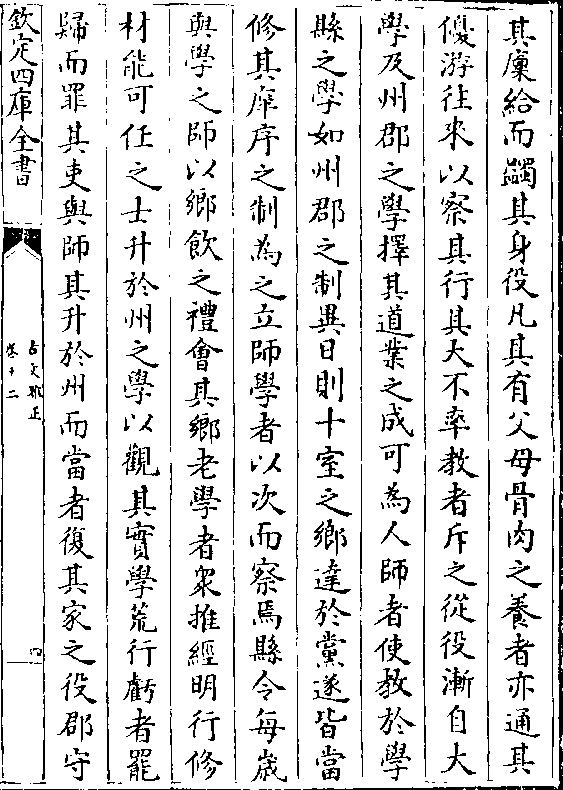 其廩給而蠲其身役凡其有父母骨肉之養者亦通其
優游往來以察其行其大不率教者斥之從役漸自大
學及州郡之學擇其道業之成可為人師者使教於學
縣之學如州郡之制異日則十室之鄉達於黨遂皆當
修其庠序之制為之立師學者以次而察焉縣令每歲
與學之師以鄉飲之禮會其鄉老學者衆推經明行修
材能可任之士升於州之學以觀其實學荒行虧者罷
歸而罪其吏與師其升於州而當者復其家之役郡守
欽定四庫全書
古文雅正
卷十二
四